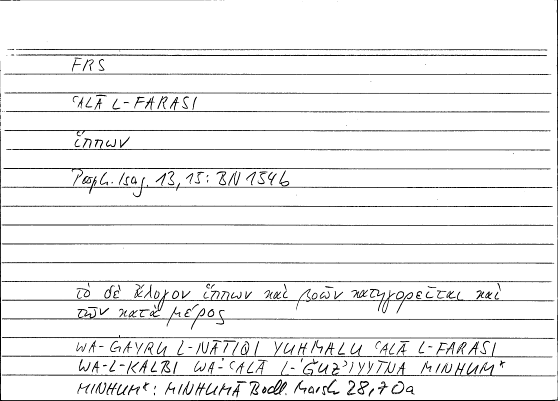 FRS
ʿALĀ L-FARASI
ἵππων
Porph. Isag. 13, 15: BN 154b
τὸ δὲ ἄλογον ἵππων καὶ βοῶν κατηγορεῖται καὶ
τῶν κατὰ μέρος
WA-ĠAYRU L-NĀṬIQI YUḤMALU ʿALĀ L-FARASI
WA-L-KALBI WA-ʿALĀ L-ǦUZʾIYYĪNA MINHUM*
MINHUM*: MINHUMĀ Bodl. Marsh 28, 70a